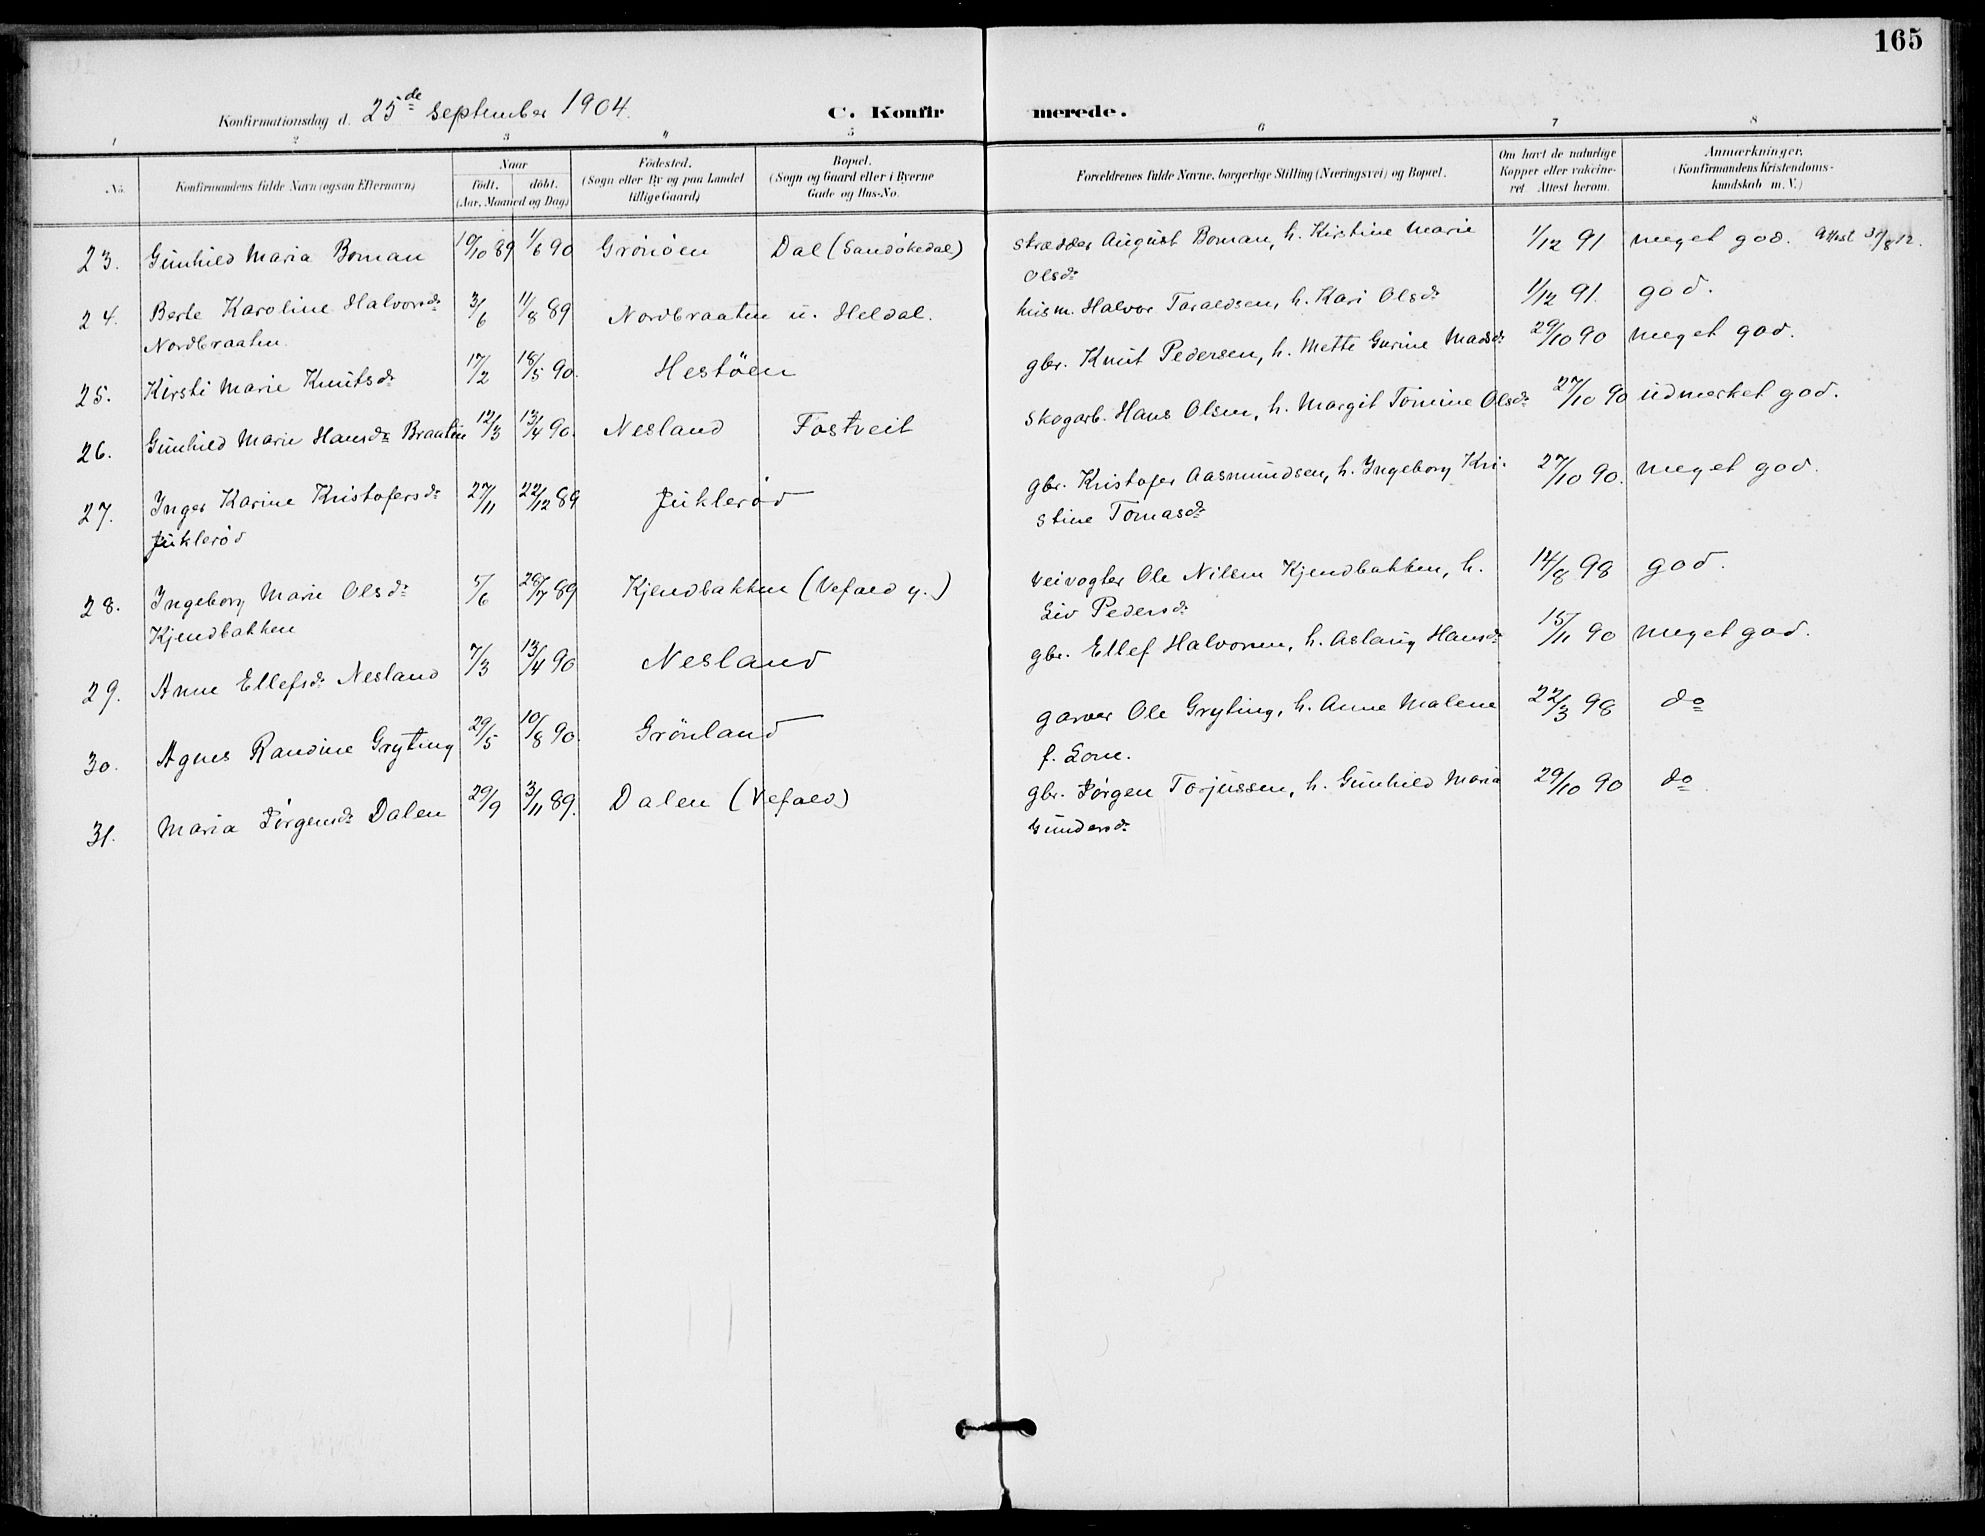 165
Konfirmationsdag d. 25de september 1904.
C. Konfirmerede.
1 2 3 " 5 6 7 8
No.
Konfirmandens fulde Navn (ogsaa Efternavn)
Naar
født. døbt.
(Aar, Maaned og Dag)
Fødested.
(Sogn eller By og paa Landet
tillige Gaard)
Bopæl.
(Sogn og Gaard eller i Byerne
Gade og Hus-No.
Forældrenes fulde Navne, borgerlige Stilling (Næringsvei) og Bopæl.
Om havt de naturlige
Kopper eller vakcine-
ret. Attest herom.
Anmærkninger.
(Konfirmandens Kristendoms-
kundskab m. V.)
23. Gunhild Maria Boman 10/10 89 1/6 90 Grönöen Dal (Sandökedal) skrædder August Boman, h. Kirstine Marie 1/12 91 meget god. Attest 31/8 12.
Olsdr
24. Berte Karoline Halvorsdr 3/6 11/8 89 Nordbraaten u. Heldal. husm. Halvor Taraldsen, h. Kari Olsdr 1/12 91. god.
Nordbraaten
25. Kirsti Marie Knutsdr 17/2 18/5 90. Hestöen gbr. Knut Pedersen, h. Mette Gurine Madsdr 29/10 90 meget god.
26. Gunhild Marie Hansdr Braaten 12/3 13/4 90. Nesland Fostveit skogarb. Hans Olsen, h. Margit Tomine Olsdr 27/10 90 udmerket god.
27. Inger Karine Kristofersdr 27/11 22/12 89 Juklerød gbr. Kristofer Aasmundsen, h. Ingeborg Kri- 27/10 90. meget god.
Juklerød stine Tomasdr
28. Ingeborg Marie Olsdr 5/6 28/7 89 Kjendbakken (Vefald y.) Veivogter Ole Nilsen Kjendbakken, h. 14/8 98 god.
Kjendbakken Liv Pedersdr
29. Anne Ellefsdr Nesland 7/3 13/4 90 Nesland gbr. Ellef Halvorsen, h. Aslaug Hansdr 15/11 90 meget god.
30. Agnes Randine Gryting 29/5 10/8 90. Grönland garver Ole Gryting, h. Anne Malene 22/3 98 do
f. Lone.
31. Maria Jørgensdr Dalen 29/9 3/11 89. Dalen (Vefald) gbr. Jørgen Torjussen, h. Gunhild Maria 29/10 90 do
Gundersdr